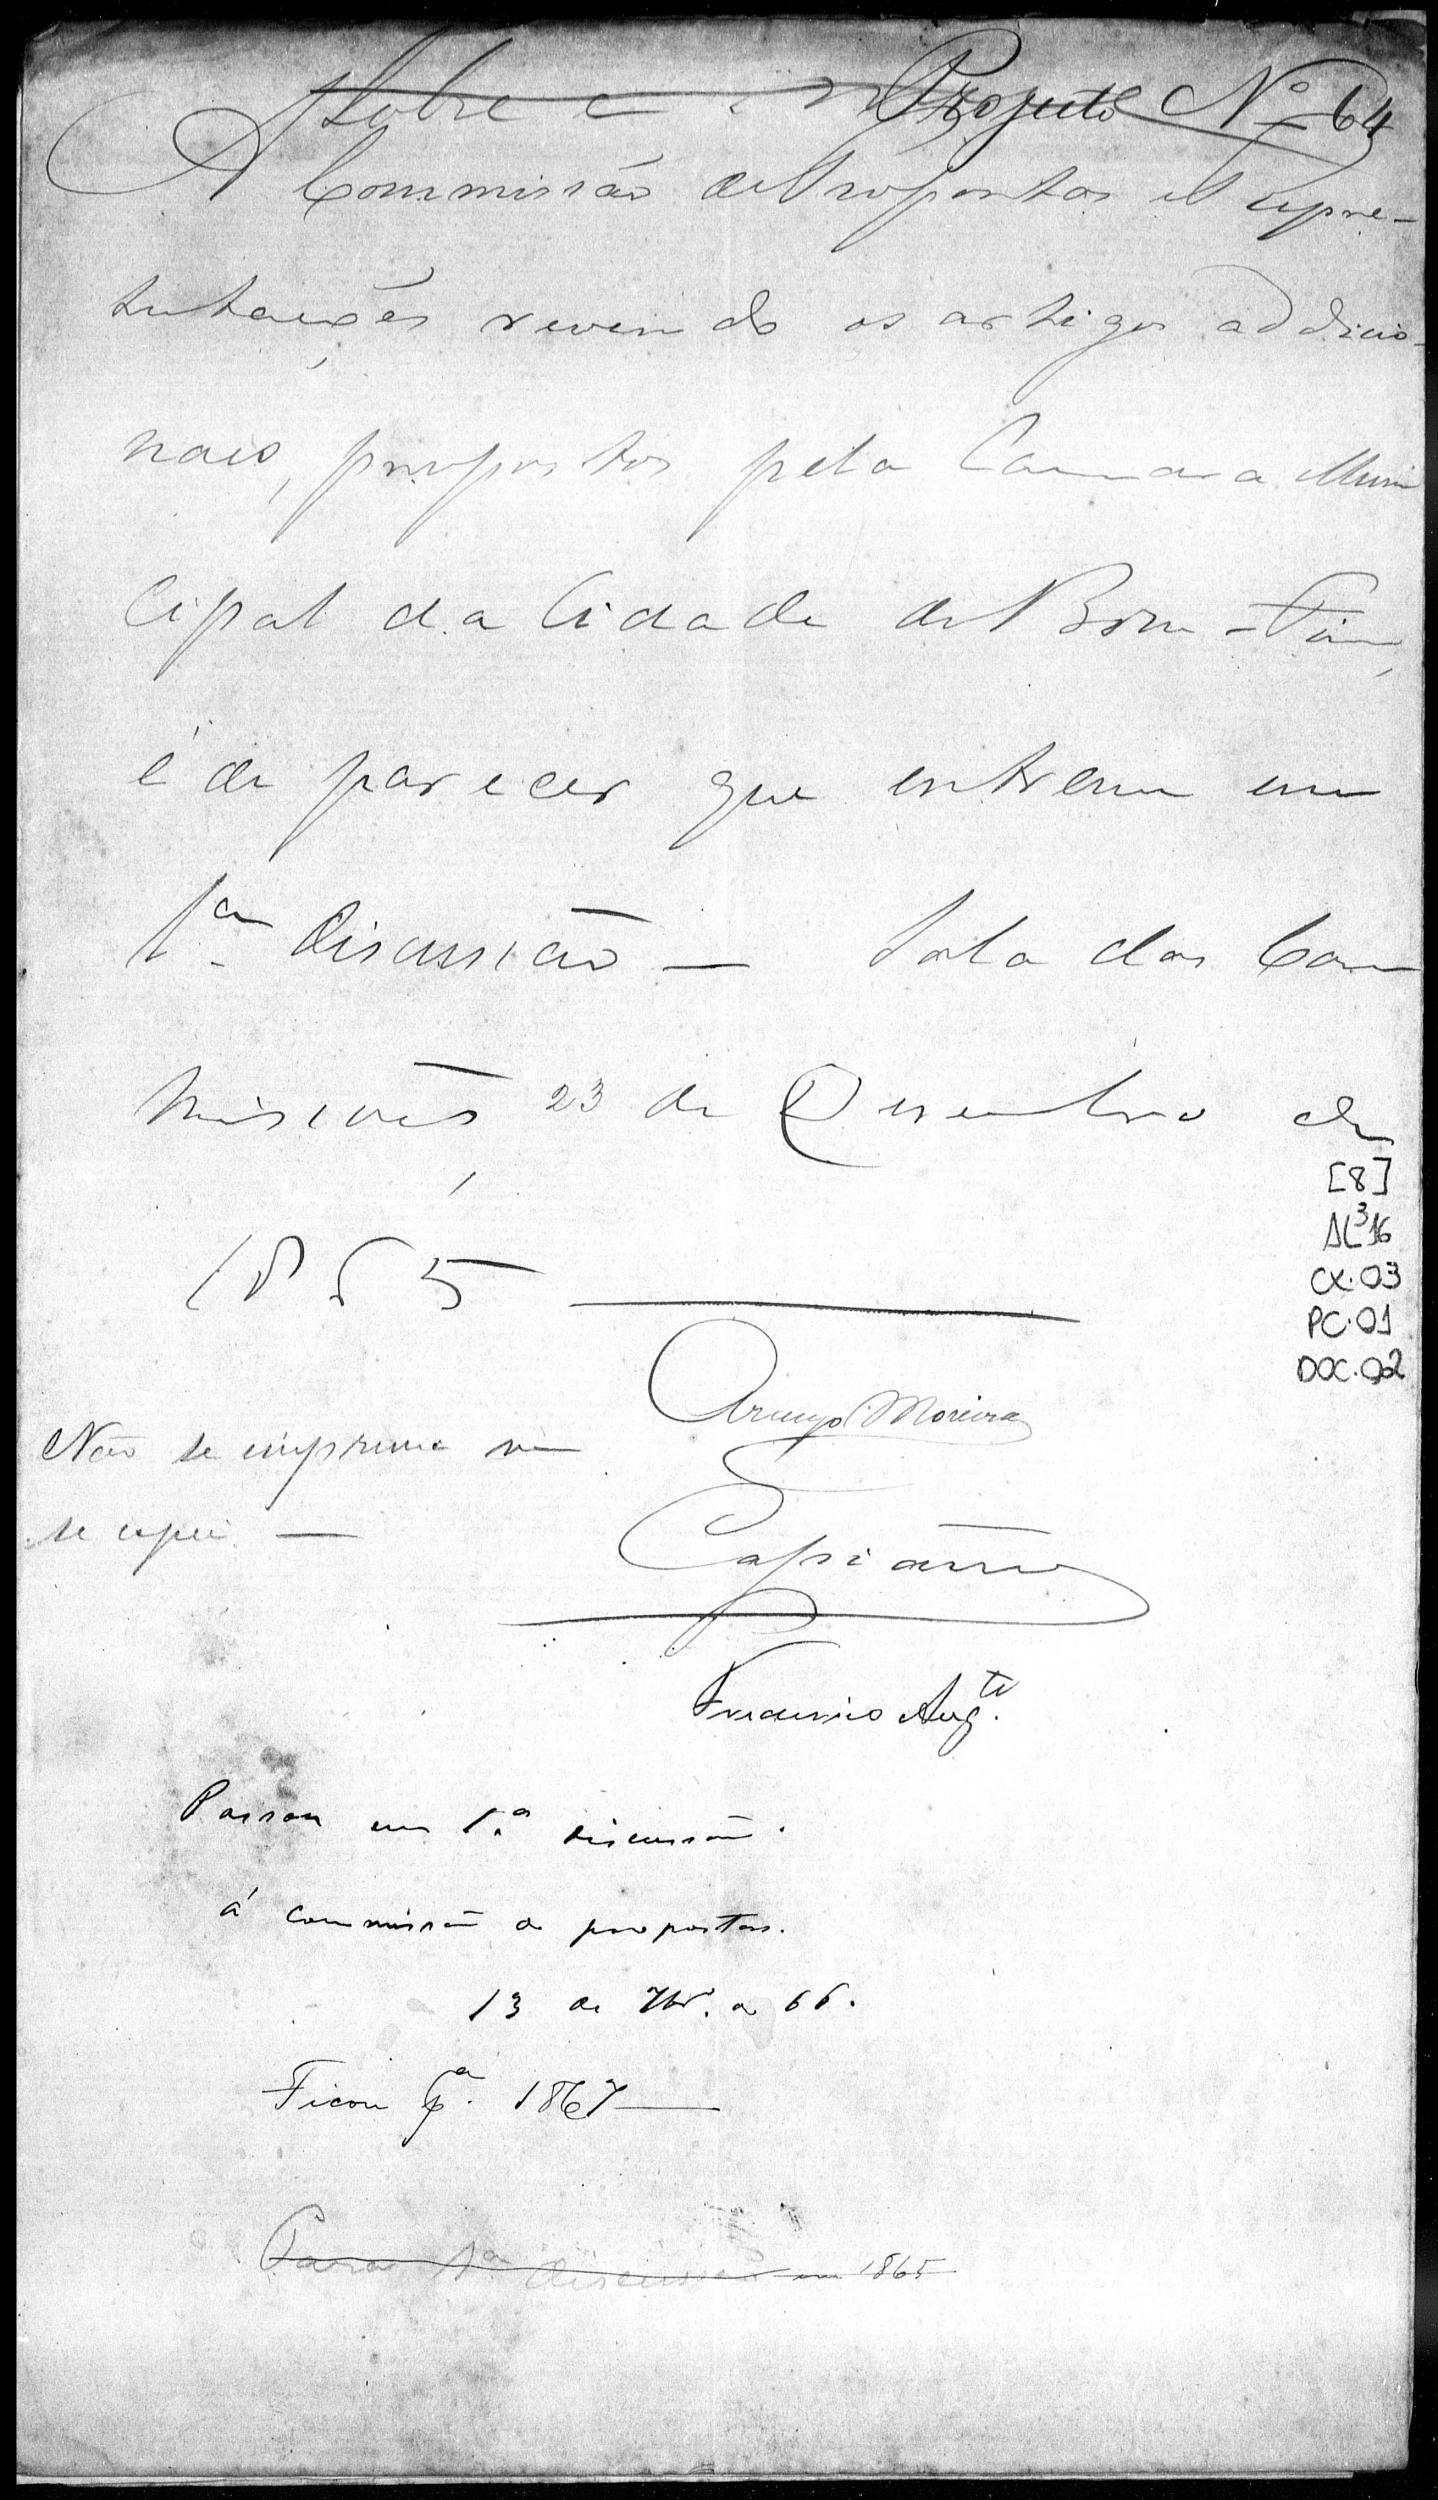 Projecto Nº 64
A Commissão de Propostas e Repre-
sentações revendo os artigos addicio-
naes, propostos pela Camara Muni
cipal da Cidade de Bom-Fim,
é de parecer que entrem em
1ª discussão — Sala das Com
missões, 23 de Dezembro de
1865
[8]
AL³16
CX.03
PC.01
DOC.02
Araujo Moreira
Não se imprima nem
se copie —
Capistrano
Frederico Augto.
Passou em 1.ª discussão.
á commissão de propostas.
13 de 7br. de 66.
Ficou pª. 1867
Para 1ª discussão em 1865